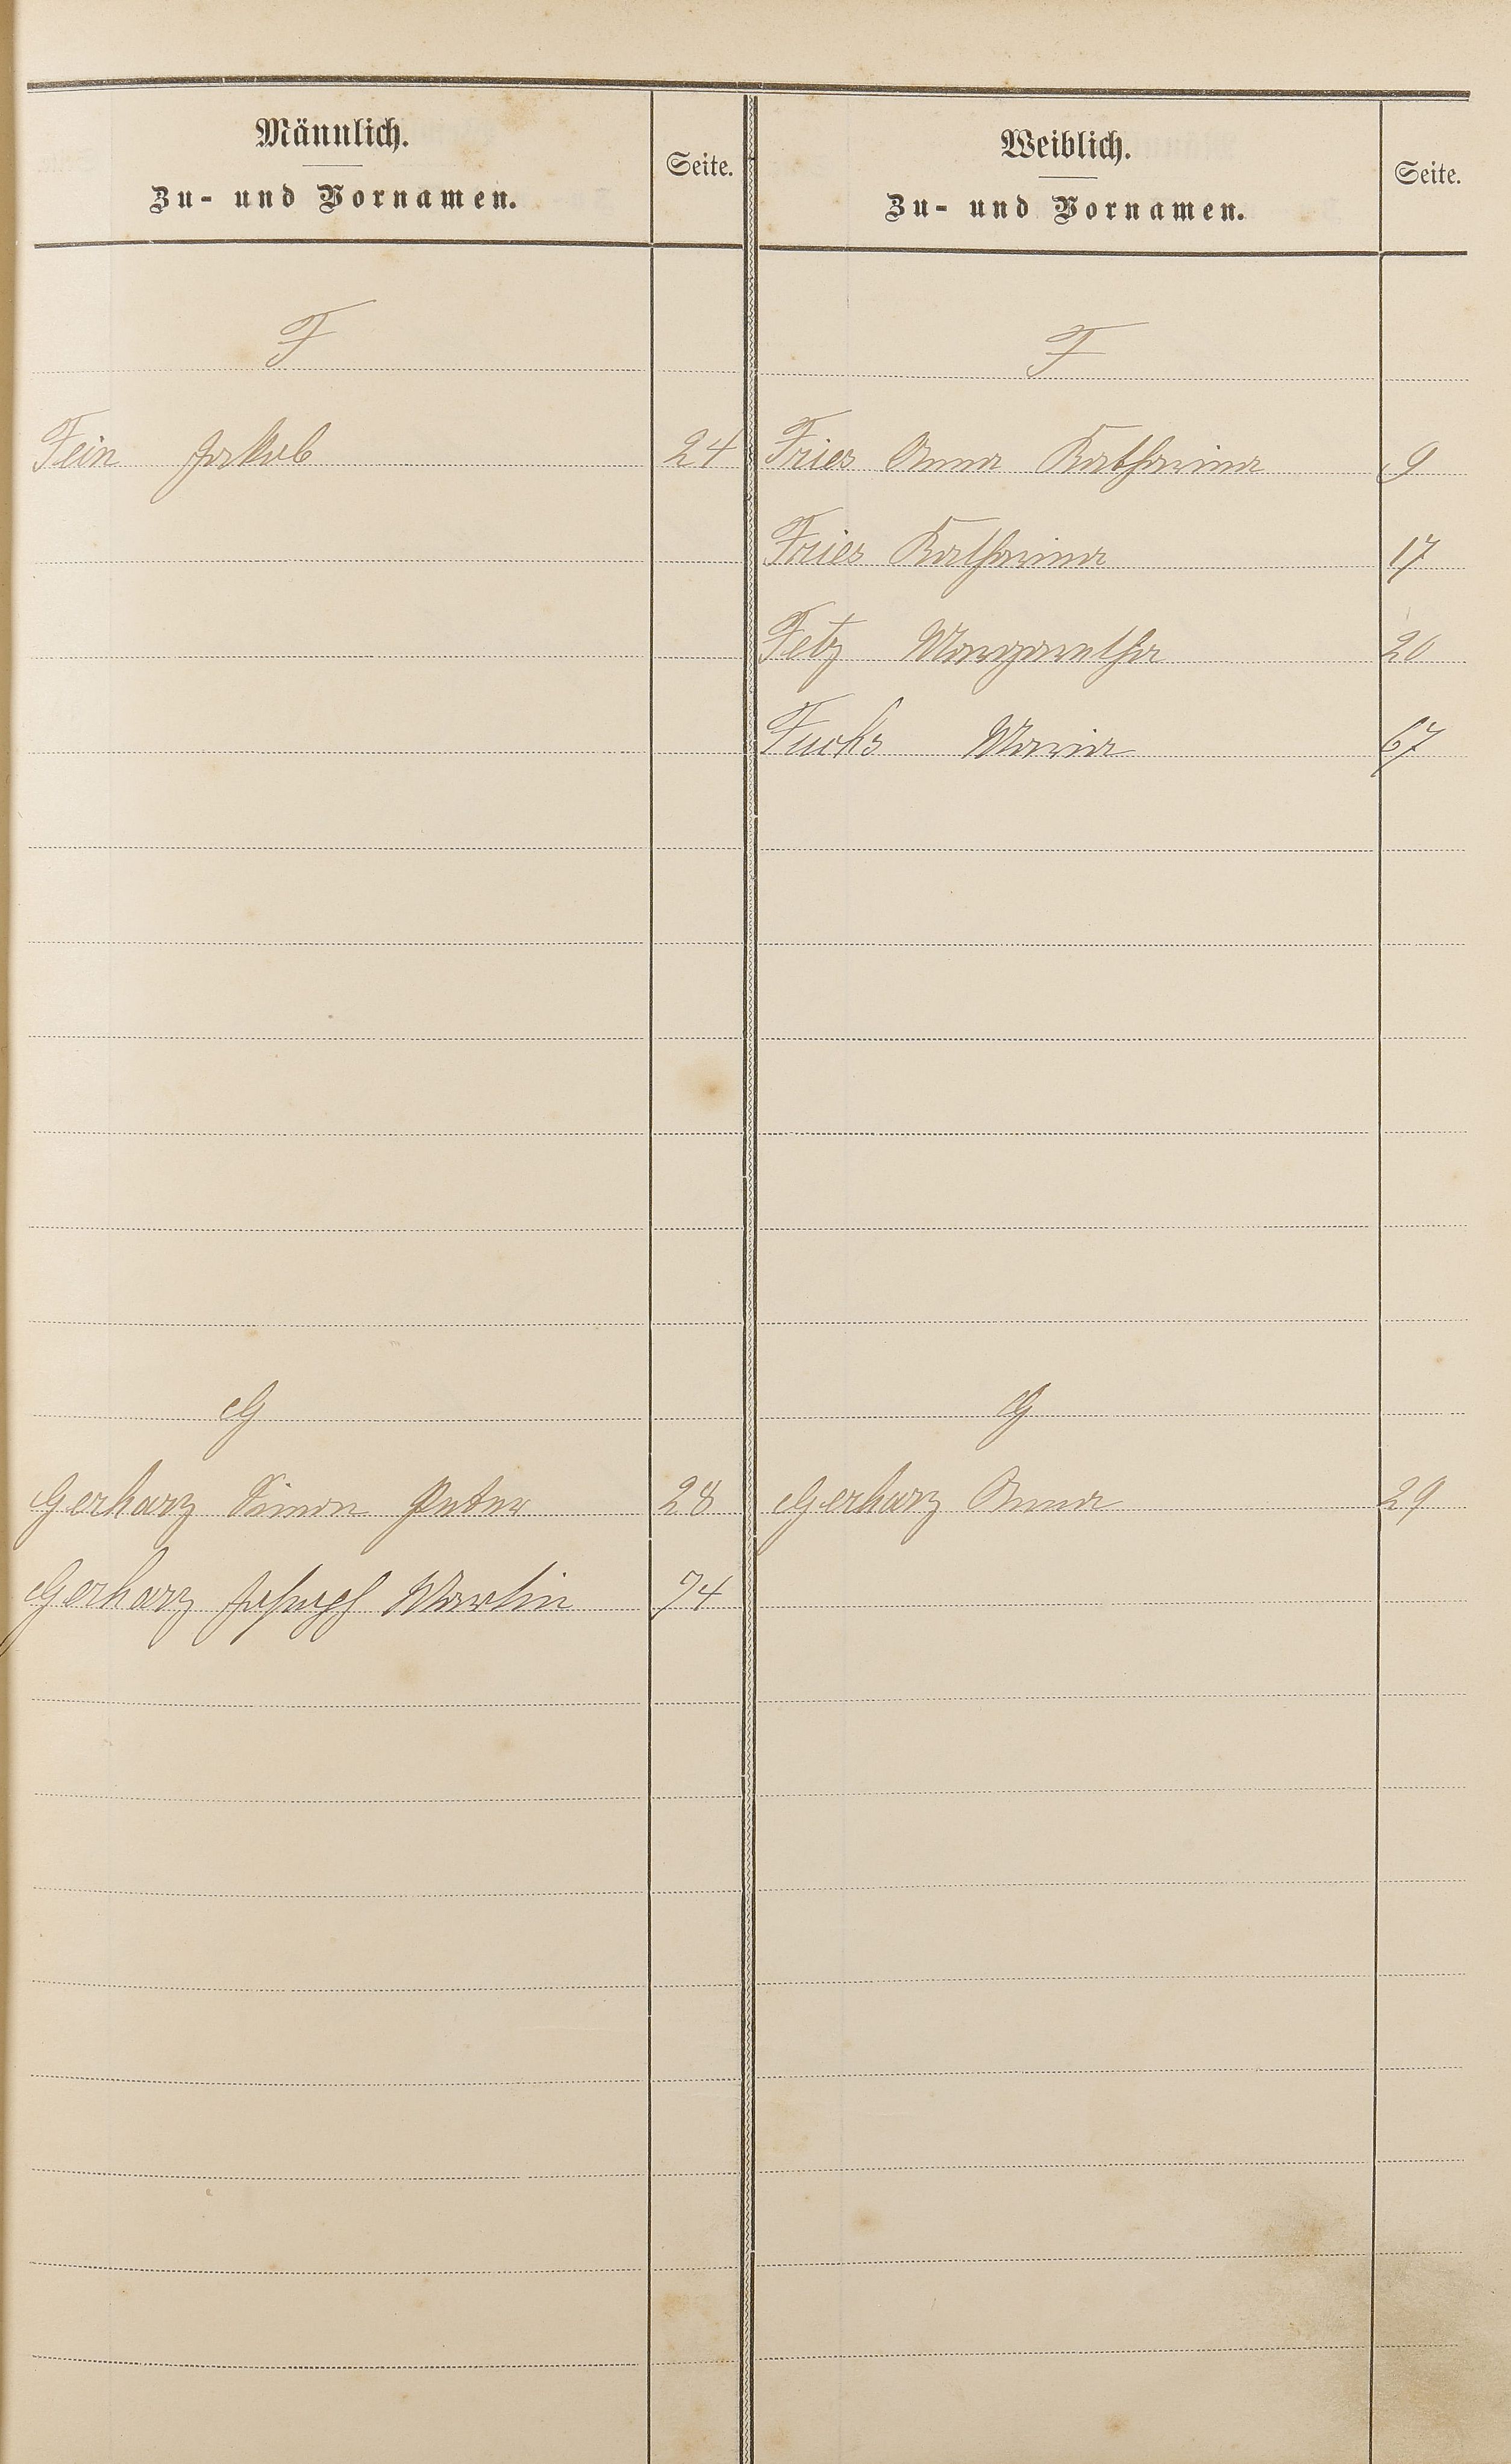 Männlich.
Zu- und Vornamen.
Seite.
Weiblich.
Zu- und Vornamen.
Seite.
F
F
Fein Jakob 24
Fries Anna Katharina 9
Fries Katharina 17
Fetz Margaretha 20
Fuchs Maria 67
G
G
Gerharz Simon Peter 28
Gerharz Anna 29
Gerharz Joseph Martin 74